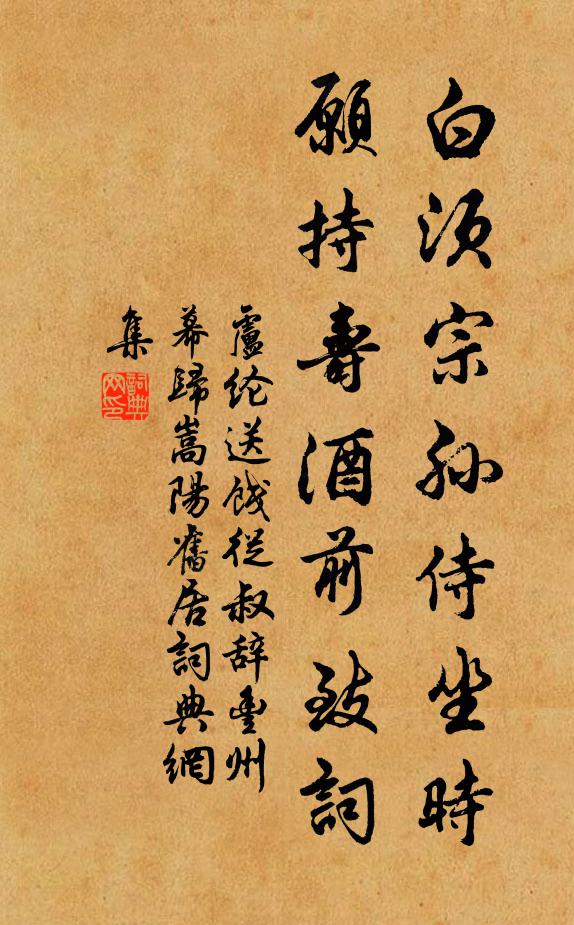 白须宗孙侍坐時
願持壽酒前致詞
盧纶送餞從叔辞豐州
幕歸嵩陽舊居詞典網
集
詞典
网印